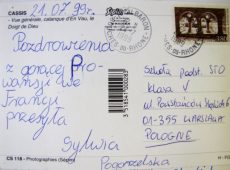 CASSIS 21.07.99r.
10 - Vue générale, calanque d'En Vau, le
Doigt de Dieu
Pozdrowienia
z gorącej Pro-
wansji we
Francji
przesyła
Sylwia
Pogorzelska
Szkoła podst. STO
klasa V
ul. Powstańców
01-355 WARSZAWA
POLOGNE
CS 118 - Photographies